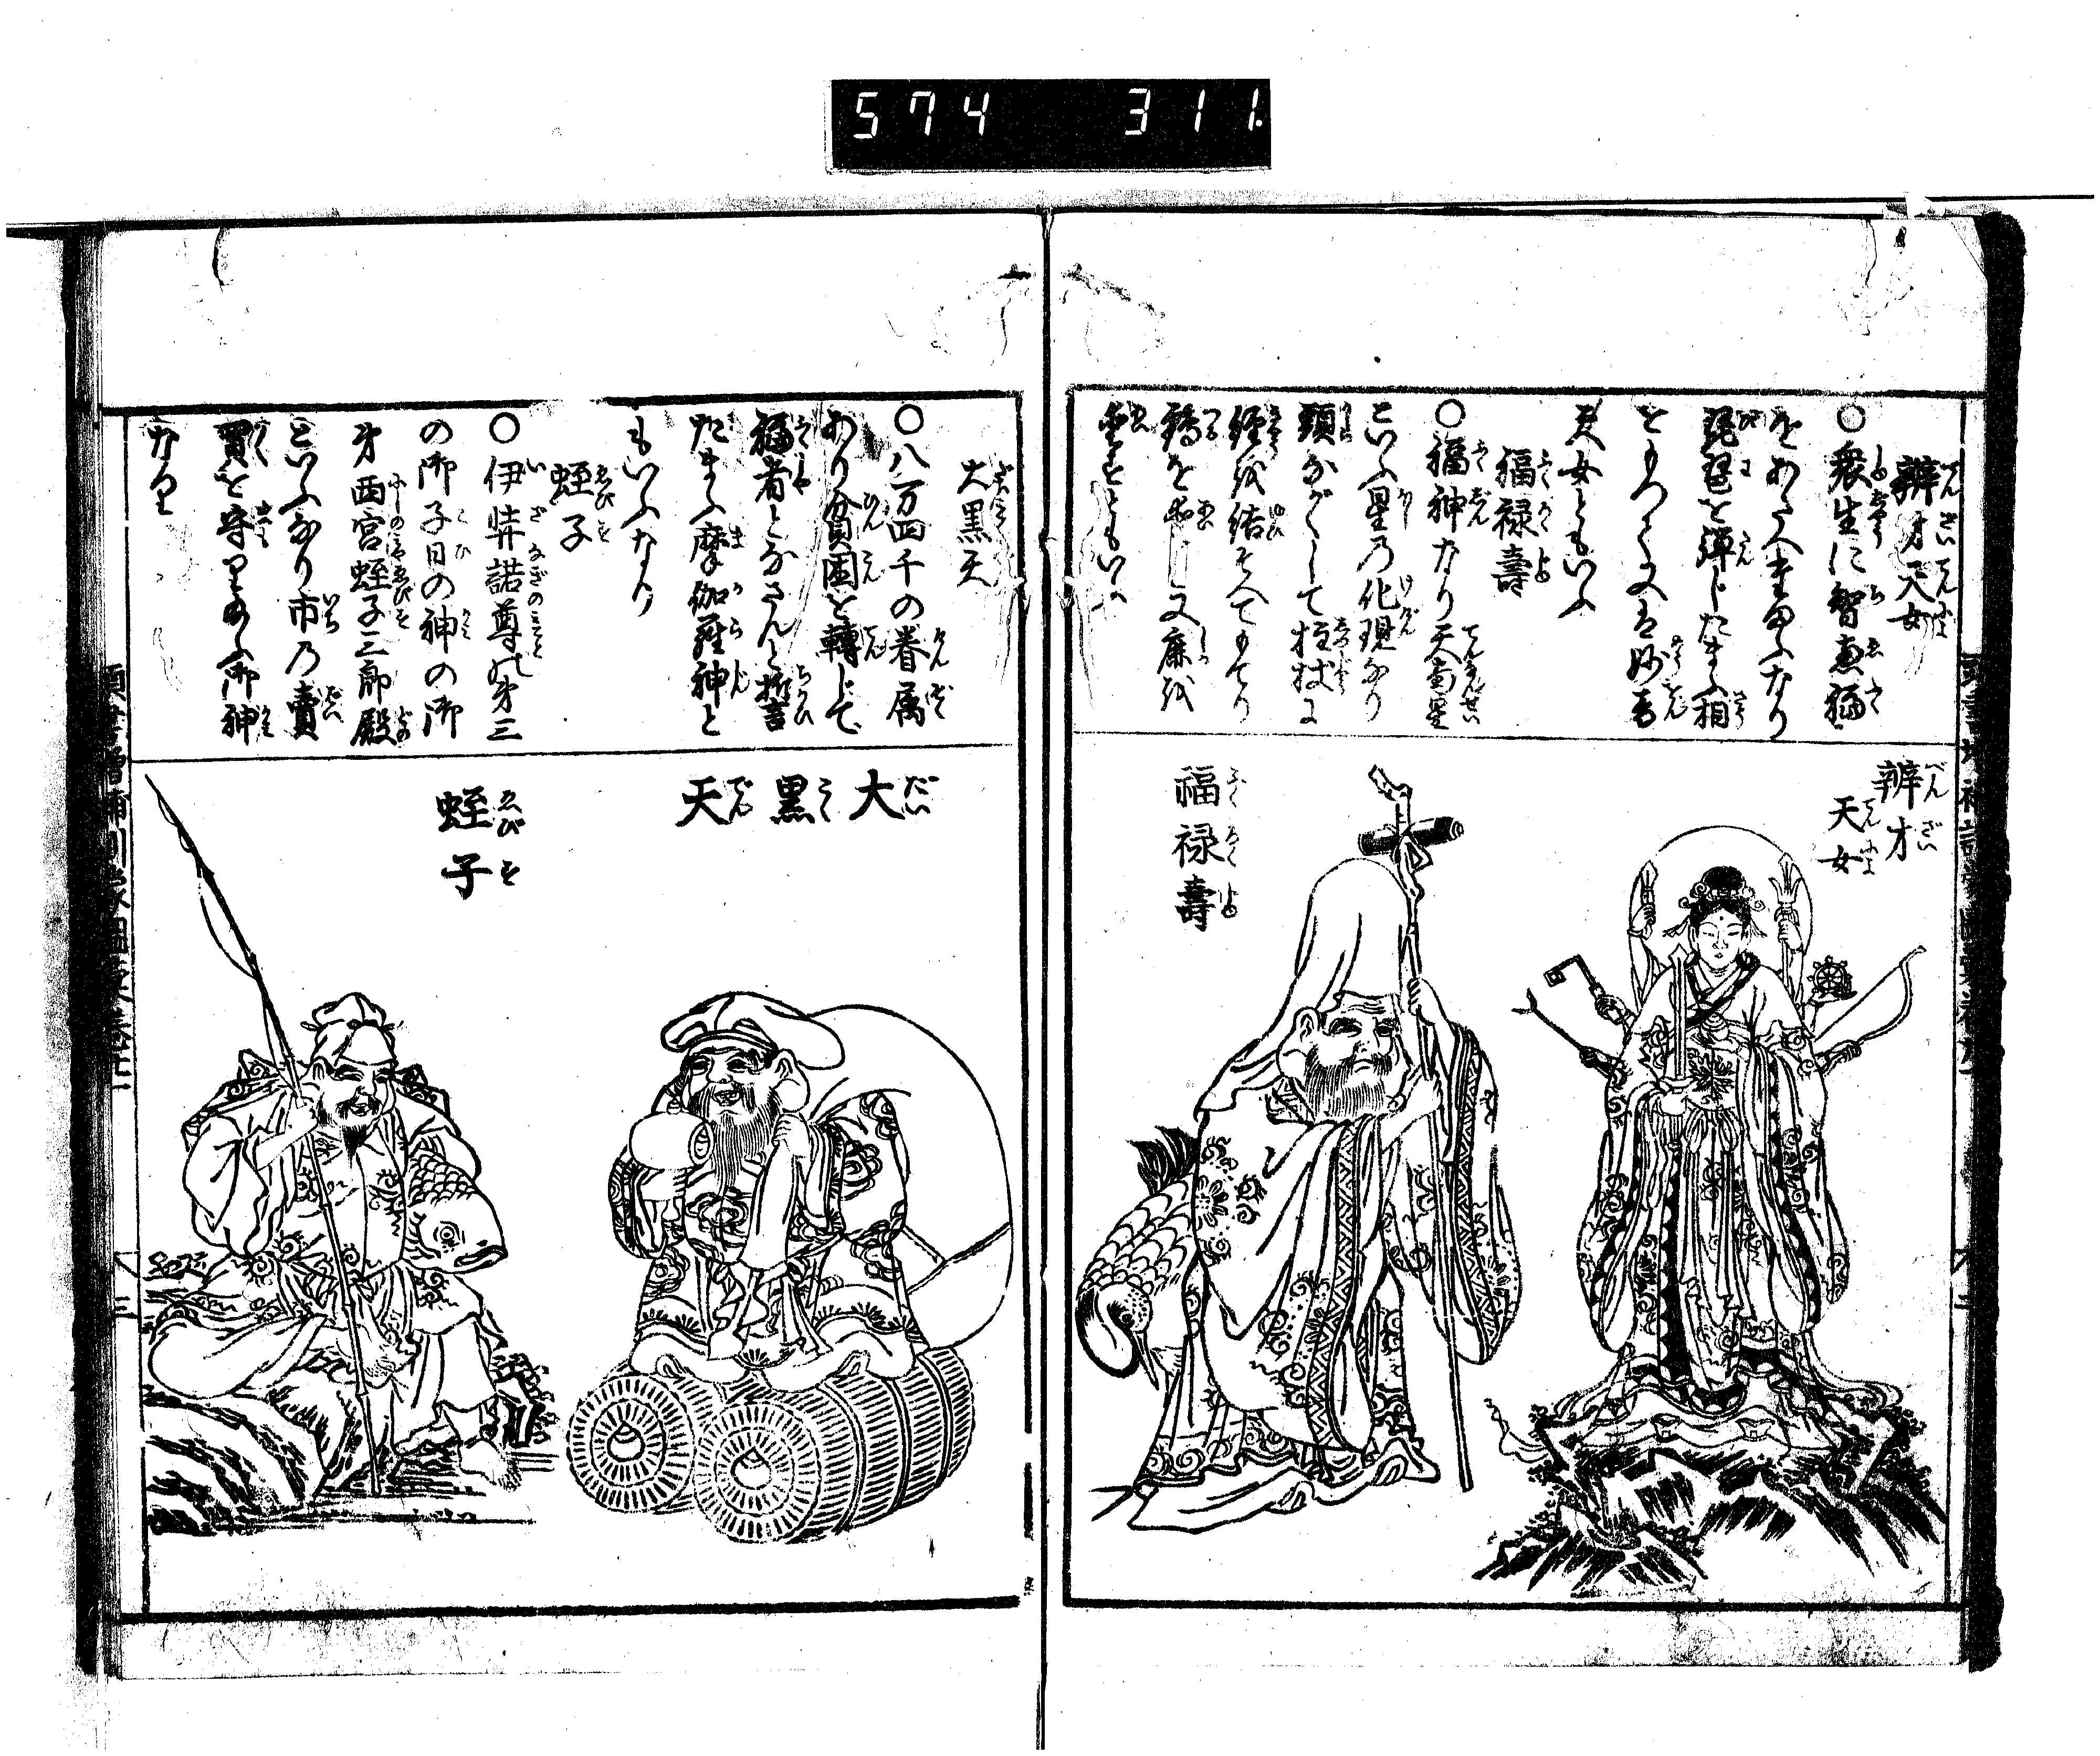 574 311
辨才天女
○衆生に智恵福
をあたへ玉ふなり
琵琶を弾じたまふ相
美女ともいふ
福禄壽
○福神なり天南星
といふ星乃化現なり
頭ながくして拄杖に
經を結そへてもてり
鶴を愛し又鹿を
愛すともいへり
辨才
天女
福禄壽
大黒天
○八万四千の眷属
あり貧困を轉じて
福者となさんと誓ひ
たまふ摩伽羅神と
もいふなり
蛭子
○伊弉諾尊の第三
の御子日の神の御
弟西宮蛭子三郎殿
といふなり市乃賣
買を守り玉ふ御神
なり
大黒天
蛭子
頭書増補訓蒙圖彙
三